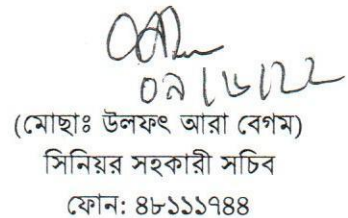 ০৯/৬/২২
(মোছাঃ উলফৎ আরা বেগম)
সিনিয়র সহকারী সচিব
ফোন: ৪৮১১১৭৪৪